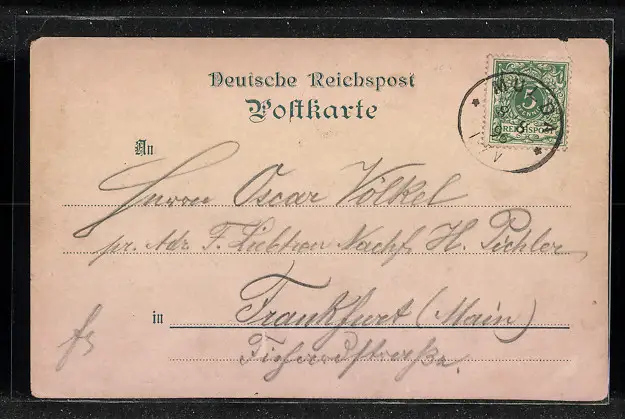 Deutsche Reichspost
Postkarte
5
REICHSPOST
An
Herrn Oscar Völkel
pr. Adr. F. Liebtron Nachf. H. Pichler
in Frankfurt (Main)